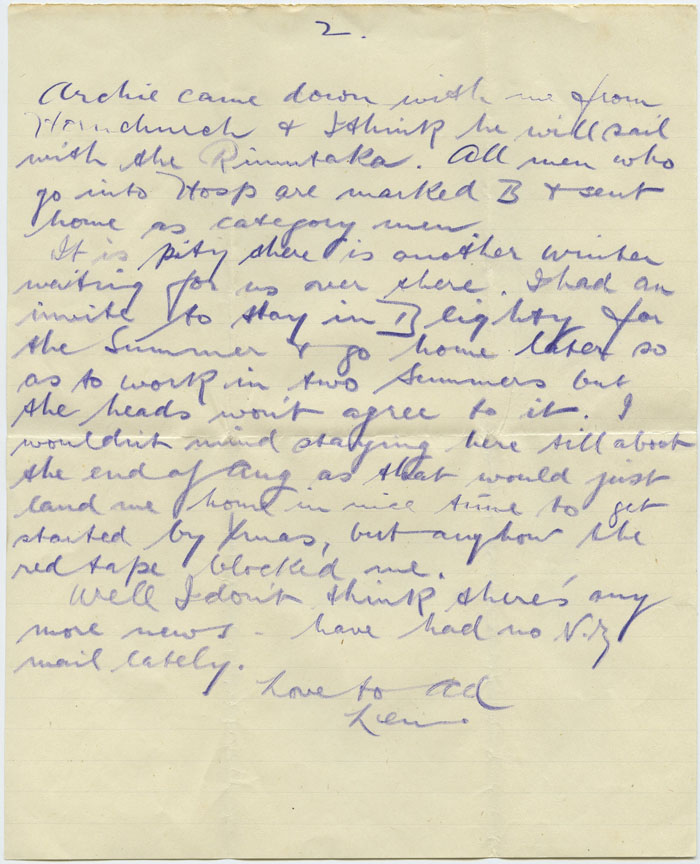 2.
Archie came down with me from
Hornchurch & I think he will sail
with the Rimutaka. All men who
go into Hosp are marked B & sent
home as category men
It is pity there is another winter
waiting for us over there. I had an
invite to stay in Blighty for
the Summer & go home later so
as to work in two Summers but
the heads won't agree to it. I
wouldn't mind staying here till about
the end of Aug as that would just
land me home in nice time to get
started by Xmas, but anyhow the
red tape blocked me.
Well I don't think there's any
more news - have had no N.Z
mail lately.
Love to all
Len.